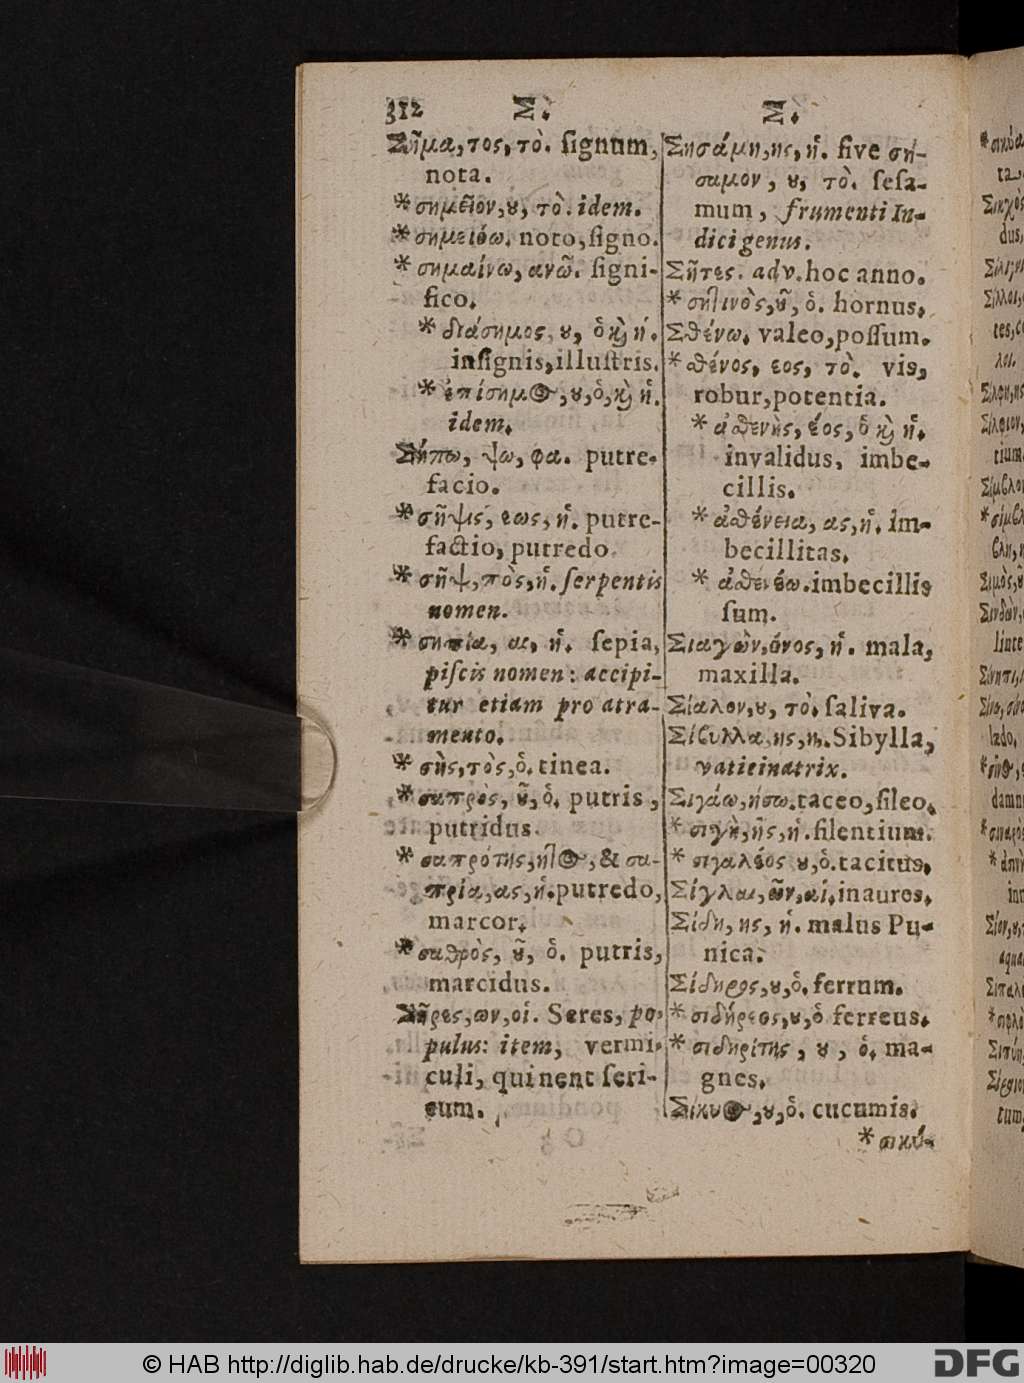 312 Σ. Σ.
Σῆμα, τος, τὸ. ſignum,
nota.
* σημεῖον, ȣ, τὸ. idem.
* σημειόω. noto, ſigno.
* σημαίνω, ανῶ. ſigni-
fico.
* διάσημος, ȣ, ὁ κ̀ ἡ.
inſignis, illuſtris.
* ἐπίσημος, ȣ, ὁ, κ̀ ἡ.
idem.
Σήπω, ψω, φα. putre-
facio.
* σῆψις, εως, ἡ. putre-
factio, putredo.
* σὴψ, πὸς, ἡ. ſerpentis
nomen.
* σηπία, ας, ἡ. ſepia,
piſcis nomen: accipi-
tur etiam pro atra-
mento.
* σὴς, τὸς, ὁ. tinea.
* σαπρὸς, ȣ͂, ὁ. putris,
putridus.
* σαπρότης, ητος, & σα-
πρία, ας, ἡ. putredo,
marcor.
* σαθρὸς, ȣ͂, ὁ. putris,
marcidus.
Σῆρες, ων, οἱ. Seres, po-
pulus: item, vermi-
culi, qui nent ſeri-
cum.
Σησάμη, ης, ἡ. ſive σή-
σαμον, ȣ, τὸ. ſeſa-
mum, frumenti In-
dici genus.
Σῆτες. adv. hoc anno.
* σητινὸς, ȣ͂, ὁ. hornus.
Σθένω. valeo, poſſum.
* σθένος, εος, τὸ. vis,
robur, potentia.
* ἀσθενὴς, έος, ὁ κ̀ ἡ.
invalidus, imbe-
cillis.
* ἀσθένεια, ας, ἡ. im-
becillitas.
* ἀσθενέω. imbecillis
ſum.
Σιαγὼν, όνος, ἡ. mala,
maxilla.
Σίαλον, ȣ, τὸ. ſaliva.
Σίβυλλα, ης, η. Sibylla,
vaticinatrix.
Σιγάω, ήσω. taceo, ſileo.
* σιγὴ, ῆς, ἡ. ſilentium.
* σιγαλέος ȣ, ὁ. tacitus.
Σίγλαι, ῶν, αἱ. inaures.
Σίδη, ης, ἡ. malus Pu-
nica.
Σίδηρος, ȣ, ὁ. ferrum.
* σιδήρεος, ȣ, ὁ ferreus.
* σιδηρίτης, ȣ, ὁ. ma-
gnes.
Σίκυος, ȣ, ὁ. cucumis.
* σικύ-
© HAB http://diglib.hab.de/drucke/kb-391/start.htm?image=00320
DFG